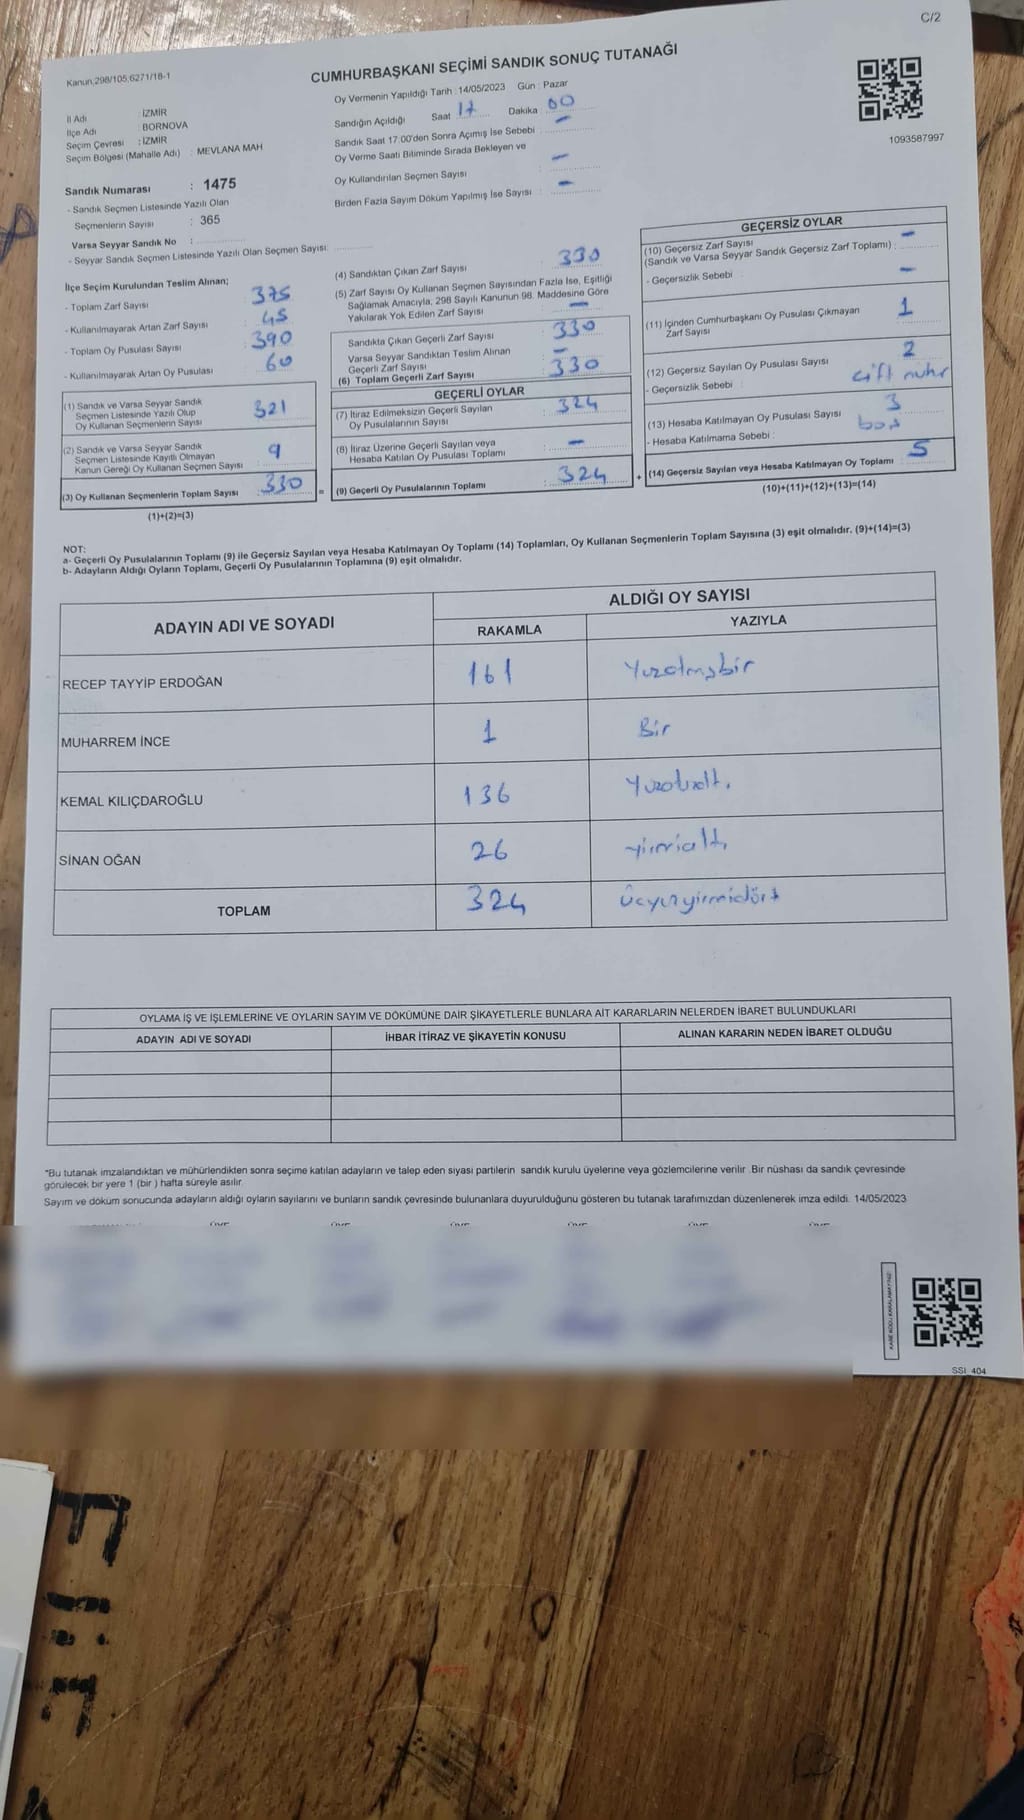 C/2
Kanun;298/105;6271/18-1
CUMHURBAŞKANI SEÇİMİ SANDIK SONUÇ TUTANAĞI
İl Adı : İZMİR
İlçe Adı : BORNOVA
Seçim Çevresi : İZMİR
Seçim Bölgesi (Mahalle Adı) : MEVLANA MAH
Sandık Numarası : 1475
- Sandık Seçmen Listesinde Yazılı Olan
Seçmenlerin Sayısı : 365
Varsa Seyyar Sandık No :
- Seyyar Sandık Seçmen Listesinde Yazılı Olan Seçmen Sayısı:
Oy Vermenin Yapıldığı Tarih : 14/05/2023 Gün : Pazar
Sandığın Açıldığı Saat 17 Dakika 00
Sandık Saat 17:00'den Sonra Açımış İse Sebebi : -
Oy Verme Saati Bitiminde Sırada Bekleyen ve
Oy Kullandırılan Seçmen Sayısı : -
Birden Fazla Sayım Döküm Yapılmış İse Sayısı : -
1093587997
İlçe Seçim Kurulundan Teslim Alınan;
- Toplam Zarf Sayısı : 375
- Kullanılmayarak Artan Zarf Sayısı : 45
- Toplam Oy Pusulası Sayısı : 390
- Kullanılmayarak Artan Oy Pusulası : 60
(1) Sandık ve Varsa Seyyar Sandık
Seçmen Listesinde Yazılı Olup
Oy Kullanan Seçmenlerin Sayısı : 321
(2) Sandık ve Varsa Seyyar Sandık
Seçmen Listesinde Kayıtlı Olmayan
Kanun Gereği Oy Kullanan Seçmen Sayısı : 9
(3) Oy Kullanan Seçmenlerin Toplam Sayısı : 330
(1)+(2)=(3)
(4) Sandıktan Çıkan Zarf Sayısı : 330
(5) Zarf Sayısı Oy Kullanan Seçmen Sayısından Fazla İse, Eşitliği
Sağlamak Amacıyla, 298 Sayılı Kanunun 98. Maddesine Göre
Yakılarak Yok Edilen Zarf Sayısı : -
Sandıkta Çıkan Geçerli Zarf Sayısı : 330
Varsa Seyyar Sandıktan Teslim Alınan
Geçerli Zarf Sayısı : -
(6) Toplam Geçerli Zarf Sayısı : 330
GEÇERLİ OYLAR
(7) İtiraz Edilmeksizin Geçerli Sayılan
Oy Pusulalarının Sayısı : 324
(8) İtiraz Üzerine Geçerli Sayılan veya
Hesaba Katılan Oy Pusulası Toplamı : -
= (9) Geçerli Oy Pusulalarının Toplamı : 324
GEÇERSİZ OYLAR
(10) Geçersiz Zarf Sayısı
(Sandık ve Varsa Seyyar Sandık Geçersiz Zarf Toplamı) : -
- Geçersizlik Sebebi : -
(11) İçinden Cumhurbaşkanı Oy Pusulası Çıkmayan
Zarf Sayısı : 1
(12) Geçersiz Sayılan Oy Pusulası Sayısı : 2
- Geçersizlik Sebebi : çift mühr
(13) Hesaba Katılmayan Oy Pusulası Sayısı : 3
- Hesaba Katılmama Sebebi : boş
+ (14) Geçersiz Sayılan veya Hesaba Katılmayan Oy Toplamı : 5
(10)+(11)+(12)+(13)=(14)
NOT:
a- Geçerli Oy Pusulalarının Toplamı (9) ile Geçersiz Sayılan veya Hesaba Katılmayan Oy Toplamı (14) Toplamları, Oy Kullanan Seçmenlerin Toplam Sayısına (3) eşit olmalıdır. (9)+(14)=(3)
b- Adayların Aldığı Oyların Toplamı, Geçerli Oy Pusulalarının Toplamına (9) eşit olmalıdır.
ADAYIN ADI VE SOYADI ALDIĞI OY SAYISI
RAKAMLA YAZIYLA
RECEP TAYYİP ERDOĞAN 161 Yüzaltmışbir
MUHARREM İNCE 1 Bir
KEMAL KILIÇDAROĞLU 136 Yüzotuzaltı
SİNAN OĞAN 26 yirmialtı
TOPLAM 324 Üçyüzyirmidört
OYLAMA İŞ VE İŞLEMLERİNE VE OYLARIN SAYIM VE DÖKÜMÜNE DAİR ŞİKAYETLERLE BUNLARA AİT KARARLARIN NELERDEN İBARET BULUNDUKLARI
ADAYIN ADI VE SOYADI İHBAR İTİRAZ VE ŞİKAYETİN KONUSU ALINAN KARARIN NEDEN İBARET OLDUĞU
*Bu tutanak imzalandıktan ve mühürlendikten sonra seçime katılan adayların ve talep eden siyasi partilerin sandık kurulu üyelerine veya gözlemcilerine verilir. Bir nüshası da sandık çevresinde
görülecek bir yere 1 (bir) hafta süreyle asılır.
Sayım ve döküm sonucunda adayların aldığı oyların sayılarını ve bunların sandık çevresinde bulunanlara duyurulduğunu gösteren bu tutanak tarafımızdan düzenlenerek imza edildi. 14/05/2023
KARE KODU KARALAMAYINIZ!
SSI_404